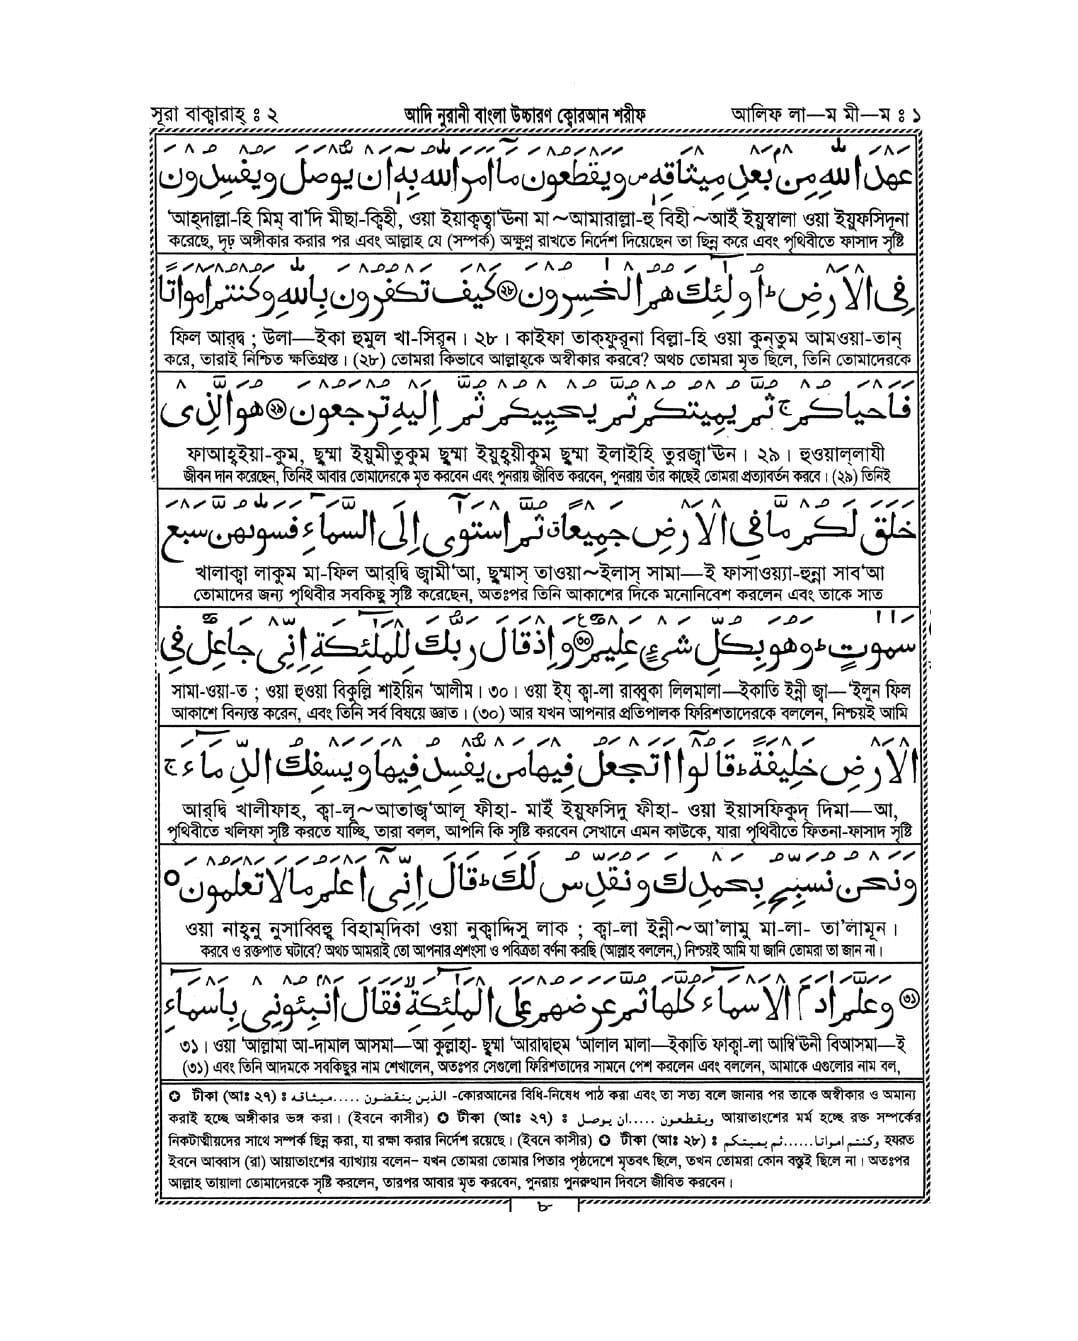 সূরা বাক্বারাহ্ ঃ ২ আদি নুরানী বাংলা উচ্চারণ ক্বোরআন শরীফ আলিফ লা—ম মী—ম ঃ ১
عَهْدَ اللّٰهِ مِنْ بَعْدِ مِيْثَاقِهٖ ص وَيَقْطَعُوْنَ مَآ اَمَرَ اللّٰهُ بِهٖٓ اَنْ يُّوْصَلَ وَيُفْسِدُوْنَ
‘আহ্দাল্লা-হি মিম্ বা‘দি মীছা-ক্বিহী, ওয়া ইয়াক্বত্বা‘ঊনা মা ~আমারাল্লা-হু বিহী ~আইঁ ইয়ূস্বালা ওয়া ইয়ুফসিদূনা
করেছে, দৃঢ় অঙ্গীকার করার পর এবং আল্লাহ যে (সম্পর্ক) অক্ষুণ্ন রাখতে নির্দেশ দিয়েছেন তা ছিন্ন করে এবং পৃথিবীতে ফাসাদ সৃষ্টি
فِى الْاَرْضِ ط اُولٰٓئِكَ هُمُ الْخٰسِرُوْنَ ۲۸ كَيْفَ تَكْفُرُوْنَ بِاللّٰهِ وَكُنْتُمْ اَمْوَاتًا
ফিল আর্দ্ব ; উলা—ইকা হুমুল খা-সিরূন। ২৮। কাইফা তাক্ফুরূনা বিল্লা-হি ওয়া কুন্তুম আমওয়া-তান্
করে, তারাই নিশ্চিত ক্ষতিগ্রস্ত। (২৮) তোমরা কিভাবে আল্লাহকে অস্বীকার করবে? অথচ তোমরা মৃত ছিলে, তিনি তোমাদেরকে
فَاَحْيَاكُمْ ج ثُمَّ يُمِيْتُكُمْ ثُمَّ يُحْيِيْكُمْ ثُمَّ اِلَيْهِ تُرْجَعُوْنَ ۲۹ هُوَ الَّذِىْ
ফাআহ্ইয়া-কুম, ছুম্মা ইয়ুমীতুকুম ছুম্মা ইয়ুহ্য়ীকুম ছুম্মা ইলাইহি তুরজ্বা‘ঊন। ২৯। হুওয়াল্লাযী
জীবন দান করেছেন, তিনিই আবার তোমাদেরকে মৃত করবেন এবং পুনরায় জীবিত করবেন, পুনরায় তাঁর কাছেই তোমরা প্রত্যাবর্তন করবে। (২৯) তিনিই
خَلَقَ لَكُمْ مَّا فِى الْاَرْضِ جَمِيْعًا ق ثُمَّ اسْتَوٰٓى اِلَى السَّمَآءِ فَسَوّٰىهُنَّ سَبْعَ
খালাক্বা লাকুম মা-ফিল আর্দ্বি জ্বামী‘আ, ছুম্মাস্ তাওয়া~ইলাস্ সামা—ই ফাসাওয়্যা-হুন্না সাব‘আ
তোমাদের জন্য পৃথিবীর সবকিছু সৃষ্টি করেছেন, অতঃপর তিনি আকাশের দিকে মনোনিবেশ করলেন এবং তাকে সাত
سَمٰوٰتٍ ط وَهُوَ بِكُلِّ شَىْءٍ عَلِيْمٌ ۳۰ وَاِذْ قَالَ رَبُّكَ لِلْمَلٰٓئِكَةِ اِنِّىْ جَاعِلٌ فِى
সামা-ওয়া-ত ; ওয়া হুওয়া বিকুল্লি শাইয়িন ‘আলীম। ৩০। ওয়া ইয্ ক্বা-লা রাব্বুকা লিলমালা—ইকাতি ইন্নী জ্বা—‘ইলুন ফিল
আকাশে বিন্যস্ত করেন, এবং তিনি সর্ব বিষয়ে জ্ঞাত। (৩০) আর যখন আপনার প্রতিপালক ফিরিশতাদেরকে বললেন, নিশ্চয়ই আমি
الْاَرْضِ خَلِيْفَةً ط قَالُوْٓا اَتَجْعَلُ فِيْهَا مَنْ يُّفْسِدُ فِيْهَا وَيَسْفِكُ الدِّمَآءَ ج
আর্দ্বি খালীফাহ, ক্বা-লূ~আতাজ্ব‘আলূ ফীহা- মাইঁ ইয়ুফসিদু ফীহা- ওয়া ইয়াসফিকুদ্ দিমা—আ,
পৃথিবীতে খলিফা সৃষ্টি করতে যাচ্ছি, তারা বলল, আপনি কি সৃষ্টি করবেন সেখানে এমন কাউকে, যারা পৃথিবীতে ফিতনা-ফাসাদ সৃষ্টি
وَنَحْنُ نُسَبِّحُ بِحَمْدِكَ وَنُقَدِّسُ لَكَ ط قَالَ اِنِّىْٓ اَعْلَمُ مَا لَا تَعْلَمُوْنَ ○
ওয়া নাহ্নু নুসাব্বিহু বিহাম্দিকা ওয়া নুক্বাদ্দিসু লাক ; ক্বা-লা ইন্নী~আ’লামু মা-লা- তা’লামূন।
করবে ও রক্তপাত ঘটাবে? অথচ আমরাই তো আপনার প্রশংসা ও পবিত্রতা বর্ণনা করছি (আল্লাহ বললেন,) নিশ্চয়ই আমি যা জানি তোমরা তা জান না।
۳۱ وَعَلَّمَ اٰدَمَ الْاَسْمَآءَ كُلَّهَا ثُمَّ عَرَضَهُمْ عَلَى الْمَلٰٓئِكَةِ فَقَالَ اَنْۢبِئُوْنِىْ بِاَسْمَآءِ
৩১। ওয়া ‘আল্লামা আ-দামাল আসমা—আ কুল্লাহা- ছুম্মা ‘আরাদ্বাহুম ‘আলাল মালা—ইকাতি ফাক্বা-লা আম্বিঊনী বিআসমা—ই
(৩১) এবং তিনি আদমকে সবকিছুর নাম শেখালেন, অতঃপর সেগুলো ফিরিশতাদের সামনে পেশ করলেন এবং বললেন, আমাকে এগুলোর নাম বল,
✪ টীকা (আঃ ২৭) ঃ الذين ينقضون .....ميثاقه -কোরআনের বিধি-নিষেধ পাঠ করা এবং তা সত্য বলে জানার পর তাকে অস্বীকার ও অমান্য
করাই হচ্ছে অঙ্গীকার ভঙ্গ করা। (ইবনে কাসীর) ✪ টীকা (আঃ ২৭) ঃ ويقطعون .....ان يوصل আয়াতাংশের মর্ম হচ্ছে রক্ত সম্পর্কের
নিকটাত্মীয়দের সাথে সম্পর্ক ছিন্ন করা, যা রক্ষা করার নির্দেশ রয়েছে। (ইবনে কাসীর) ✪ টীকা (আঃ ২৮) ঃ وكنتم امواتا......ثم يميتكم হযরত
ইবনে আব্বাস (রা) আয়াতাংশের ব্যাখ্যায় বলেন– যখন তোমরা তোমার পিতার পৃষ্ঠদেশে মৃতবৎ ছিলে, তখন তোমরা কোন বস্তুই ছিলে না। অতঃপর
আল্লাহ তায়ালা তোমাদেরকে সৃষ্টি করলেন, তারপর আবার মৃত করবেন, পুনরায় পুনরুত্থান দিবসে জীবিত করবেন।
৮